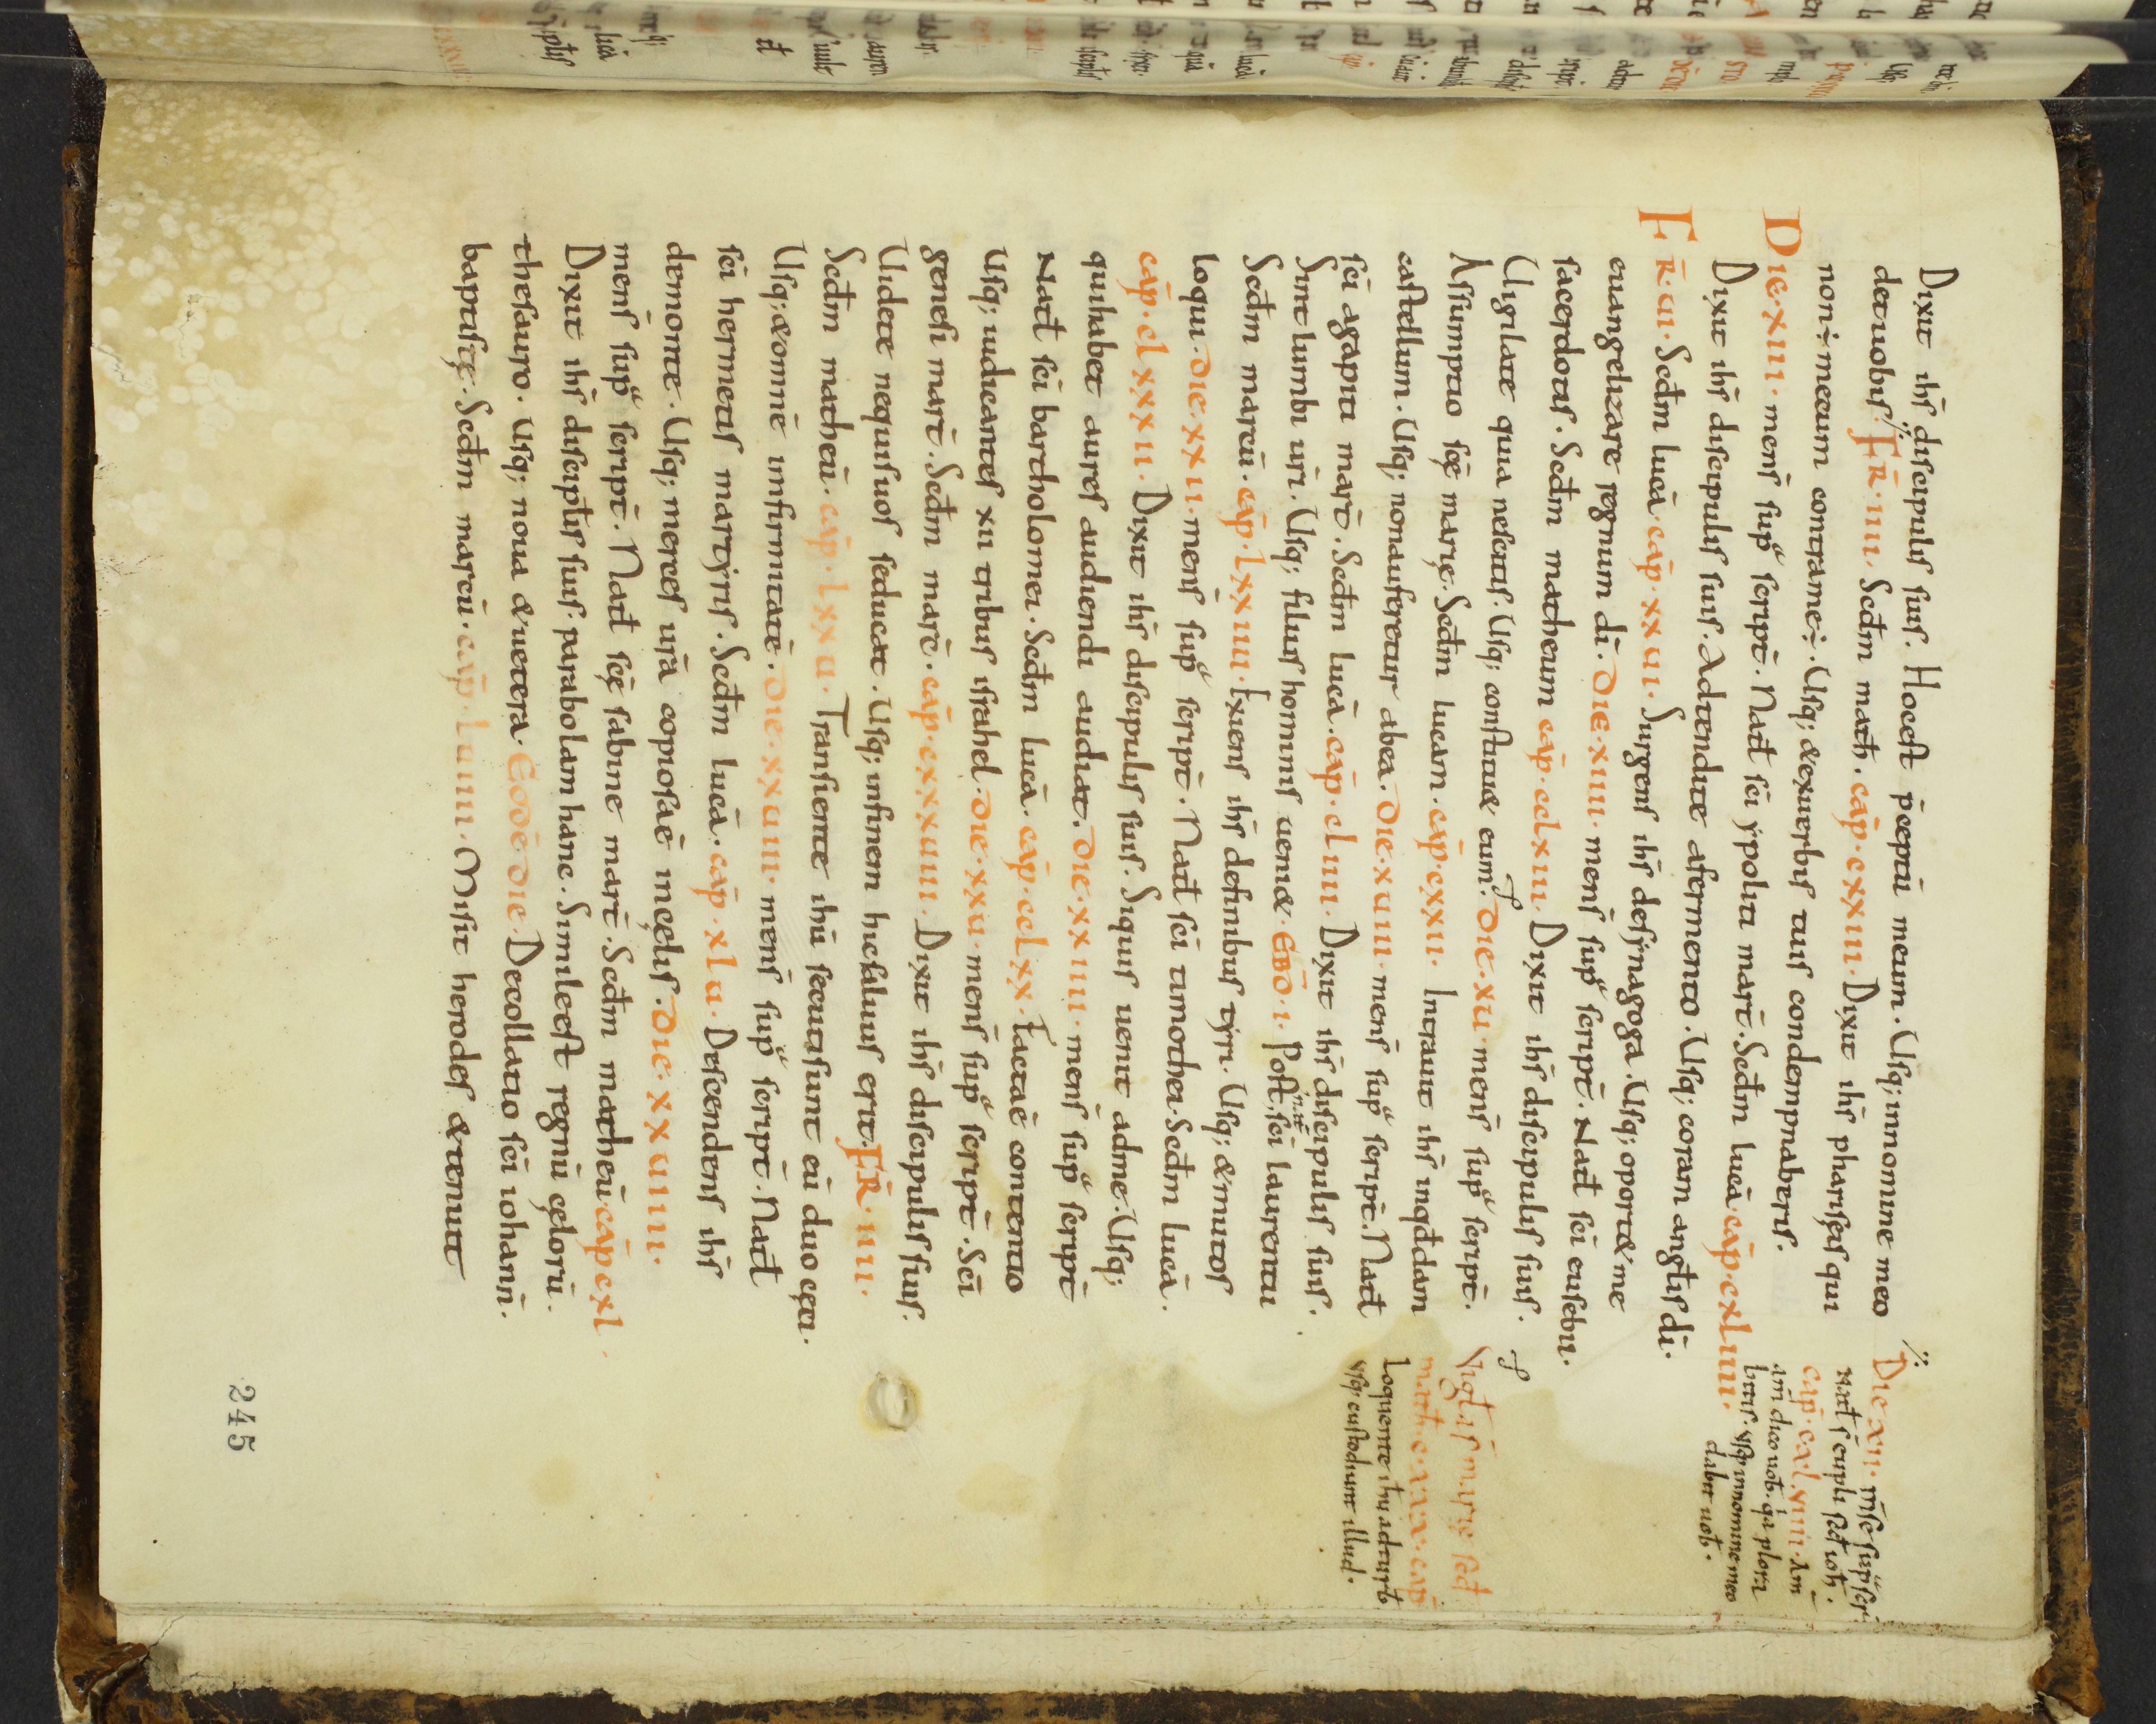 Dixit ihſ diſcipuliſ ſuiſ. Hoceſt p̄ceptū meum. Uſq; innomine meo
detuobiſ. FR̄. IIII. Scd̄m math̄. cap̄. cxxiii. Dixit ihſ phariſeiſ qui
non ÷ mecum contrame ÷. Uſq; &exuerbiſ tuiſ condempnaberiſ.
Die. xiii. menſ̄ ſup̄ ſcript̄. Nat̄ ſc̄i ẏpoliti mart̄. Scd̄m lucā. cap̄. cxlIIII.
Dixit ihſ̄ diſcipuliſ ſuiſ. Adtendite afermento. Uſq; coram angl̄iſ dī.
FR̄. ui. Scd̄m lucā. cap̄. xxui. Surgenſ ihſ̄ deſẏnagoga. Uſq; oport& me
euangelizare regnum dī. Die. xiiii. menſ̄ ſup̄ ſcript̄. Nat̄ ſc̄i euſebii.
ſacerdotiſ. Scd̄m matheum cap̄. cclxiii. Dixit ihſ̄ diſcipuliſ ſuiſ.
Uigilate quia neſcitiſ. Uſq; conſtitu& eum. Die. xu. menſ̄ ſup̄ ſcript̄.
Aſſumptio ſc̄ę marię. Scd̄m lucam. cap̄. cxxii. Intrauit ihſ̄ inqd̄dam
caſtellum. Uſq; nonauferetur abea. Die. xuiii. menſ̄ ſup̄ ſcript̄. Nat̄
ſc̄i agapiti mart̄. Scd̄m lucā. cap̄. clIIII. Dixit ihſ̄ diſcipuliſ ſuiſ.
Sint lumbi ur̄i. Uſq; filiuſ hominiſ ueni&. Eod̄. i. Poſt nat̄ ſc̄i laurentii
Scd̄m marcū. cap̄. lxxIIII. Exienſ ihſ̄ definibuſ tẏri. Uſq; &mutoſ
loqui. Die. xxii. menſ̄ ſup̄ ſcript̄. Nat̄ ſc̄i timothei. Scd̄m lucā.
cap̄. clxxxii. Dixit ihſ̄ diſcipuliſ ſuiſ. Siquiſ uenit adme. Uſq;
quihabet aureſ audiendi audiat. Die. xxIIII. menſ̄ ſup̄ ſcript̄
Nat̄ ſc̄i bartholomei. Scd̄m lucā. cap̄. cclxx. Factaē contentio
Uſq; iudicanteſ xii tribuſ iſrahel. Die. xxu. menſ̄ ſup̄ ſcript̄. Sc̄i
geneſi mart̄. Scd̄m marc̄. cap̄. cxxxuIIII. Dixit ihſ̄ diſcipuliſ ſuiſ.
Uidete nequiſuoſ ſeducat. Uſq; infinem hicſaluuſ erit. FR̄. IIII.
Scd̄m matheū. cap̄. lxxu. Tranſiente ihū ſecutiſunt eū duo cęci.
Uſq; &omnē infirmitatē. Die. xxuiii. menſ̄ ſup̄ ſcript̄. Nat̄
ſc̄i hermetiſ martẏriſ. Scd̄m lucā. cap̄. xlu. Deſcendenſ ihſ̄
demonte. Uſq; merceſ ur̄a copioſaē incęliſ. Die. xxuIIII.
menſ̄ ſup̄ ſcript̄. Nat̄ ſc̄ę ſabine mart̄. Scd̄m matheū. cap̄ cxl.
Dixit ihſ̄ diſcipl̄iſ ſuiſ. parabolam hanc. Simileeſt regnū cęlorū.
theſauro. Uſq; noua &uetera. Eodē die. Decollatio ſc̄i iohann̄.
baptiſtę. Scd̄m marcū. cap̄. luIIII. Miſit herodeſ &tenuit
Die xii. m̄ſe ſup̄ ſcr̄
Nat̄ ſ̄ eupli ſcd̄ ioh̄.
cap̄. cxlVIII. Am̄
am̄ dico uob̄. q̇a plora
bitiſ. Vſq; innomine meo
dabit uob̄.
Vigl̄ ſ̄ marię ſcd̄
math̄ cxxx. cap̄
Loquente ihū adturb̄
Vſq; cuſtodiunt illud.
245